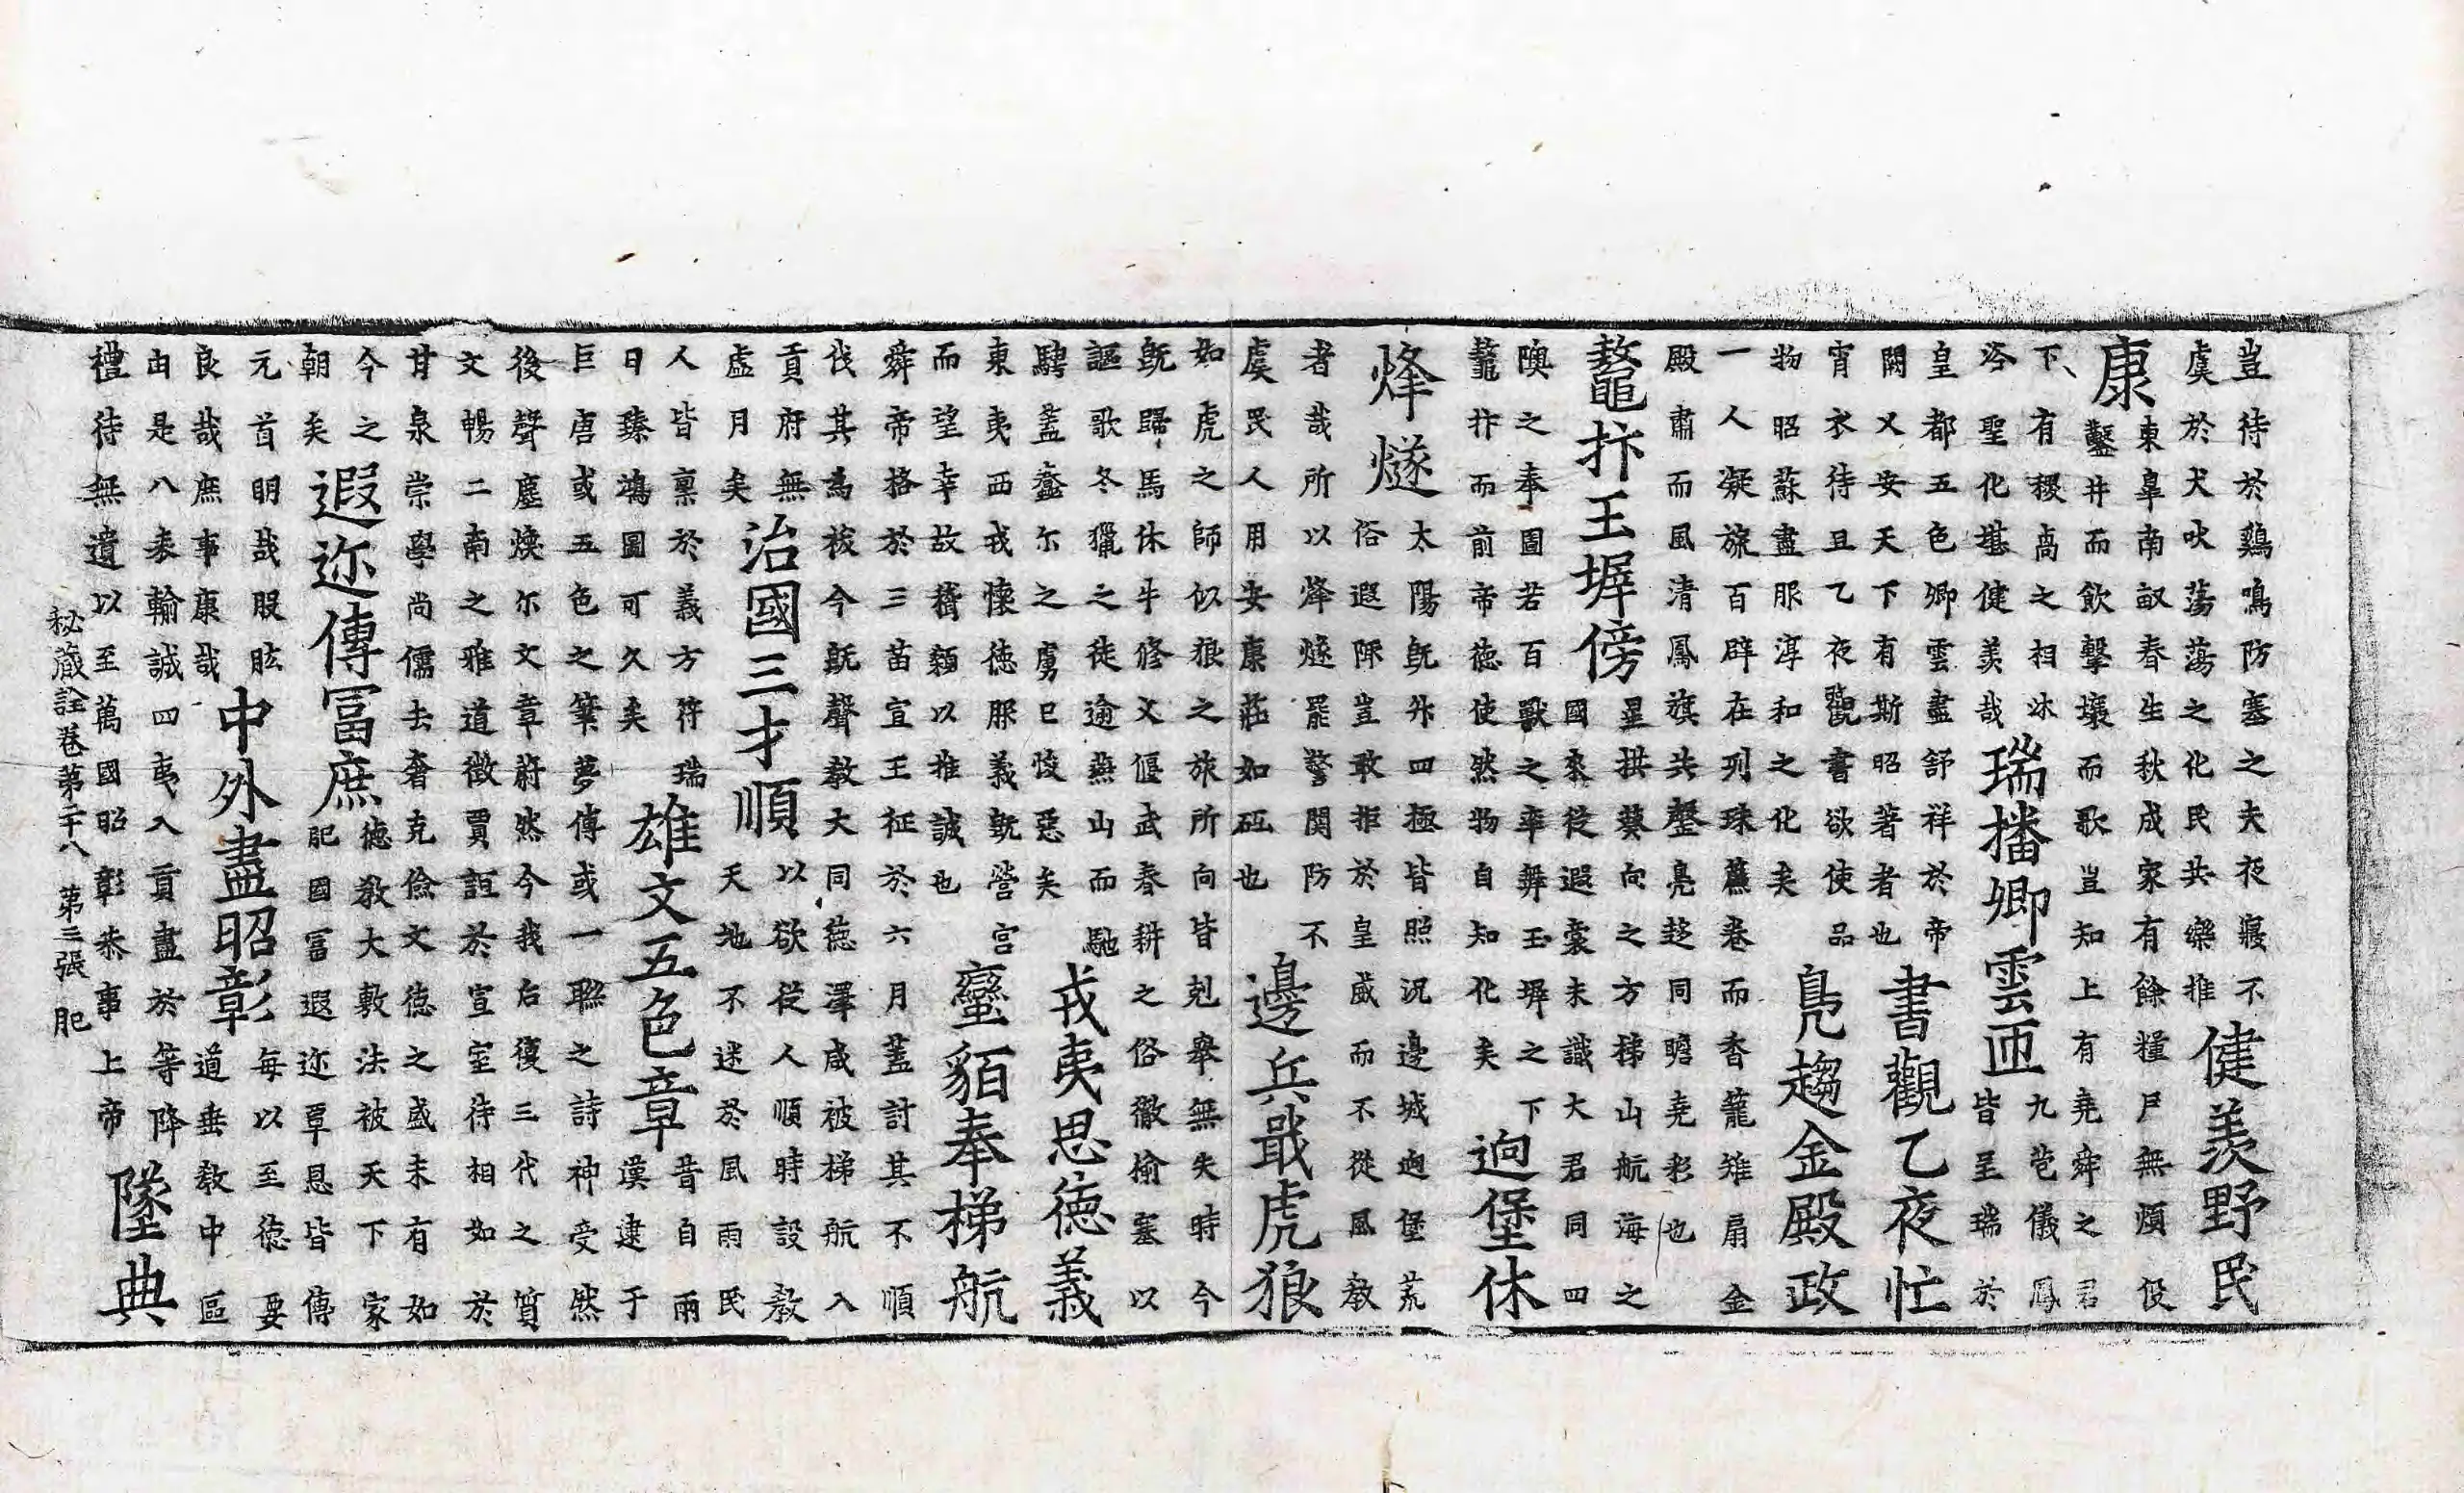 豈待於鷄鳴防塞之夫夜寢不
虞於犬吠蕩蕩之化民共樂推
健羨野民
康
東皐南畝春生秋成家有餘糧戶無煩役
鑿井而飲擊壤而歌豈知上有堯舜之君
下有稷卨之相沐
洽聖化堪健羨哉
瑞播卿雲迊
九苞儀鳳
皆呈瑞於
皇都五色卿雲盡舒祥於帝
闕乂安天下有斯昭著者也
書觀乙夜忙
宵衣待旦乙夜觀書欲使品
物昭蘇盡服淳和之化矣
鳧趨金殿政
一人凝旒百辟在列珠簾卷而香籠雉扇金
殿肅而風清鳳旗共亮趍同瞻堯彩也
鼇抃玉墀傍
星拱葵向之方梯山航海之
國來從遐裔未識大君同四
隩之奉圖若百獸之率舞玉墀之下
鼇抃而前帝德使然物自知化矣
逈堡休
烽燧
太陽既外四極皆照況邊城逈堡荒
俗遐陬豈敢拒於皇威而不從風教
者哉所以烽燧罷警関防不
虞民人用安康莊如砥也
邊兵戢虎狼
如虎之師似狼之旅所向皆剋舉無失時今
既歸馬休牛修文偃武春耕之俗徹榆塞以
謳歌冬獵之徒逾燕山而馳
騁蓋蠢尔之虜已悛惡矣
戎夷思德義
東夷西戎懷德服義既營宮
而望幸故稽顙以推誠也
蠻貊奉梯航
舜帝格於三苗宣王征於六月蓋討其不順
伐其為梗今既聲教大同德澤咸被梯航入
貢府無
虛月矣
治國三才順
以欲從人順時設教
天地不迷於風雨民
人皆稟於義方符瑞
日臻鴻圖可久矣
雄文五色章
音自兩
漢逮于
巨唐或五色之筆夢傳或一聯之詩神受然
後聲塵煥尔文章蔚然今我后復三代之質
文暢二南之雅道徵賈誼於宣室待相如於
甘泉崇學尚儒去奢克儉文德之盛未有如
今之
朝矣
遐迩傳冨庶
德教大敷法被天下家
肥國冨遐迩覃恩皆傳
元首明哉股肱
良哉庶事康哉
中外盡昭彰
每以至德要
道垂教中區
由是八表輸誠四夷入貢盡於等降
禮待無遺以至萬國昭彰未事上帝
墜典
秘蔵詮卷第二十八 第三張 肥